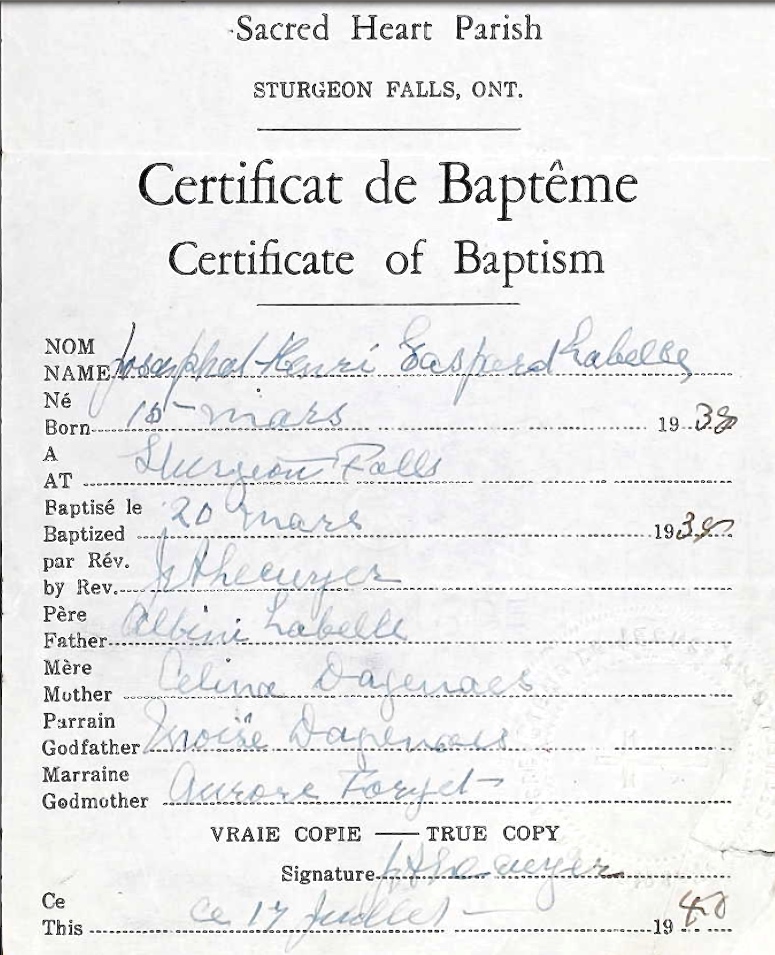 Sacred Heart Parish
STURGEON FALLS, ONT.
Certificat de Baptême
Certificate of Baptism
NOM
NAME Josaphat Henri Gaspard Labelle
Né
Born mars 19
A
AT Sturgeon Falls
Baptisé le
Baptized 20 mars 19
par Rév.
by Rev.
Père
Father Albini Labelle
Mère
Mother Celina Dagenais
Parrain
Godfather Moïse Dagenais
Marraine
Godmother Aurore Forget
VRAIE COPIE — TRUE COPY
Signature
Ce
This ce 17 Juillet 19 40